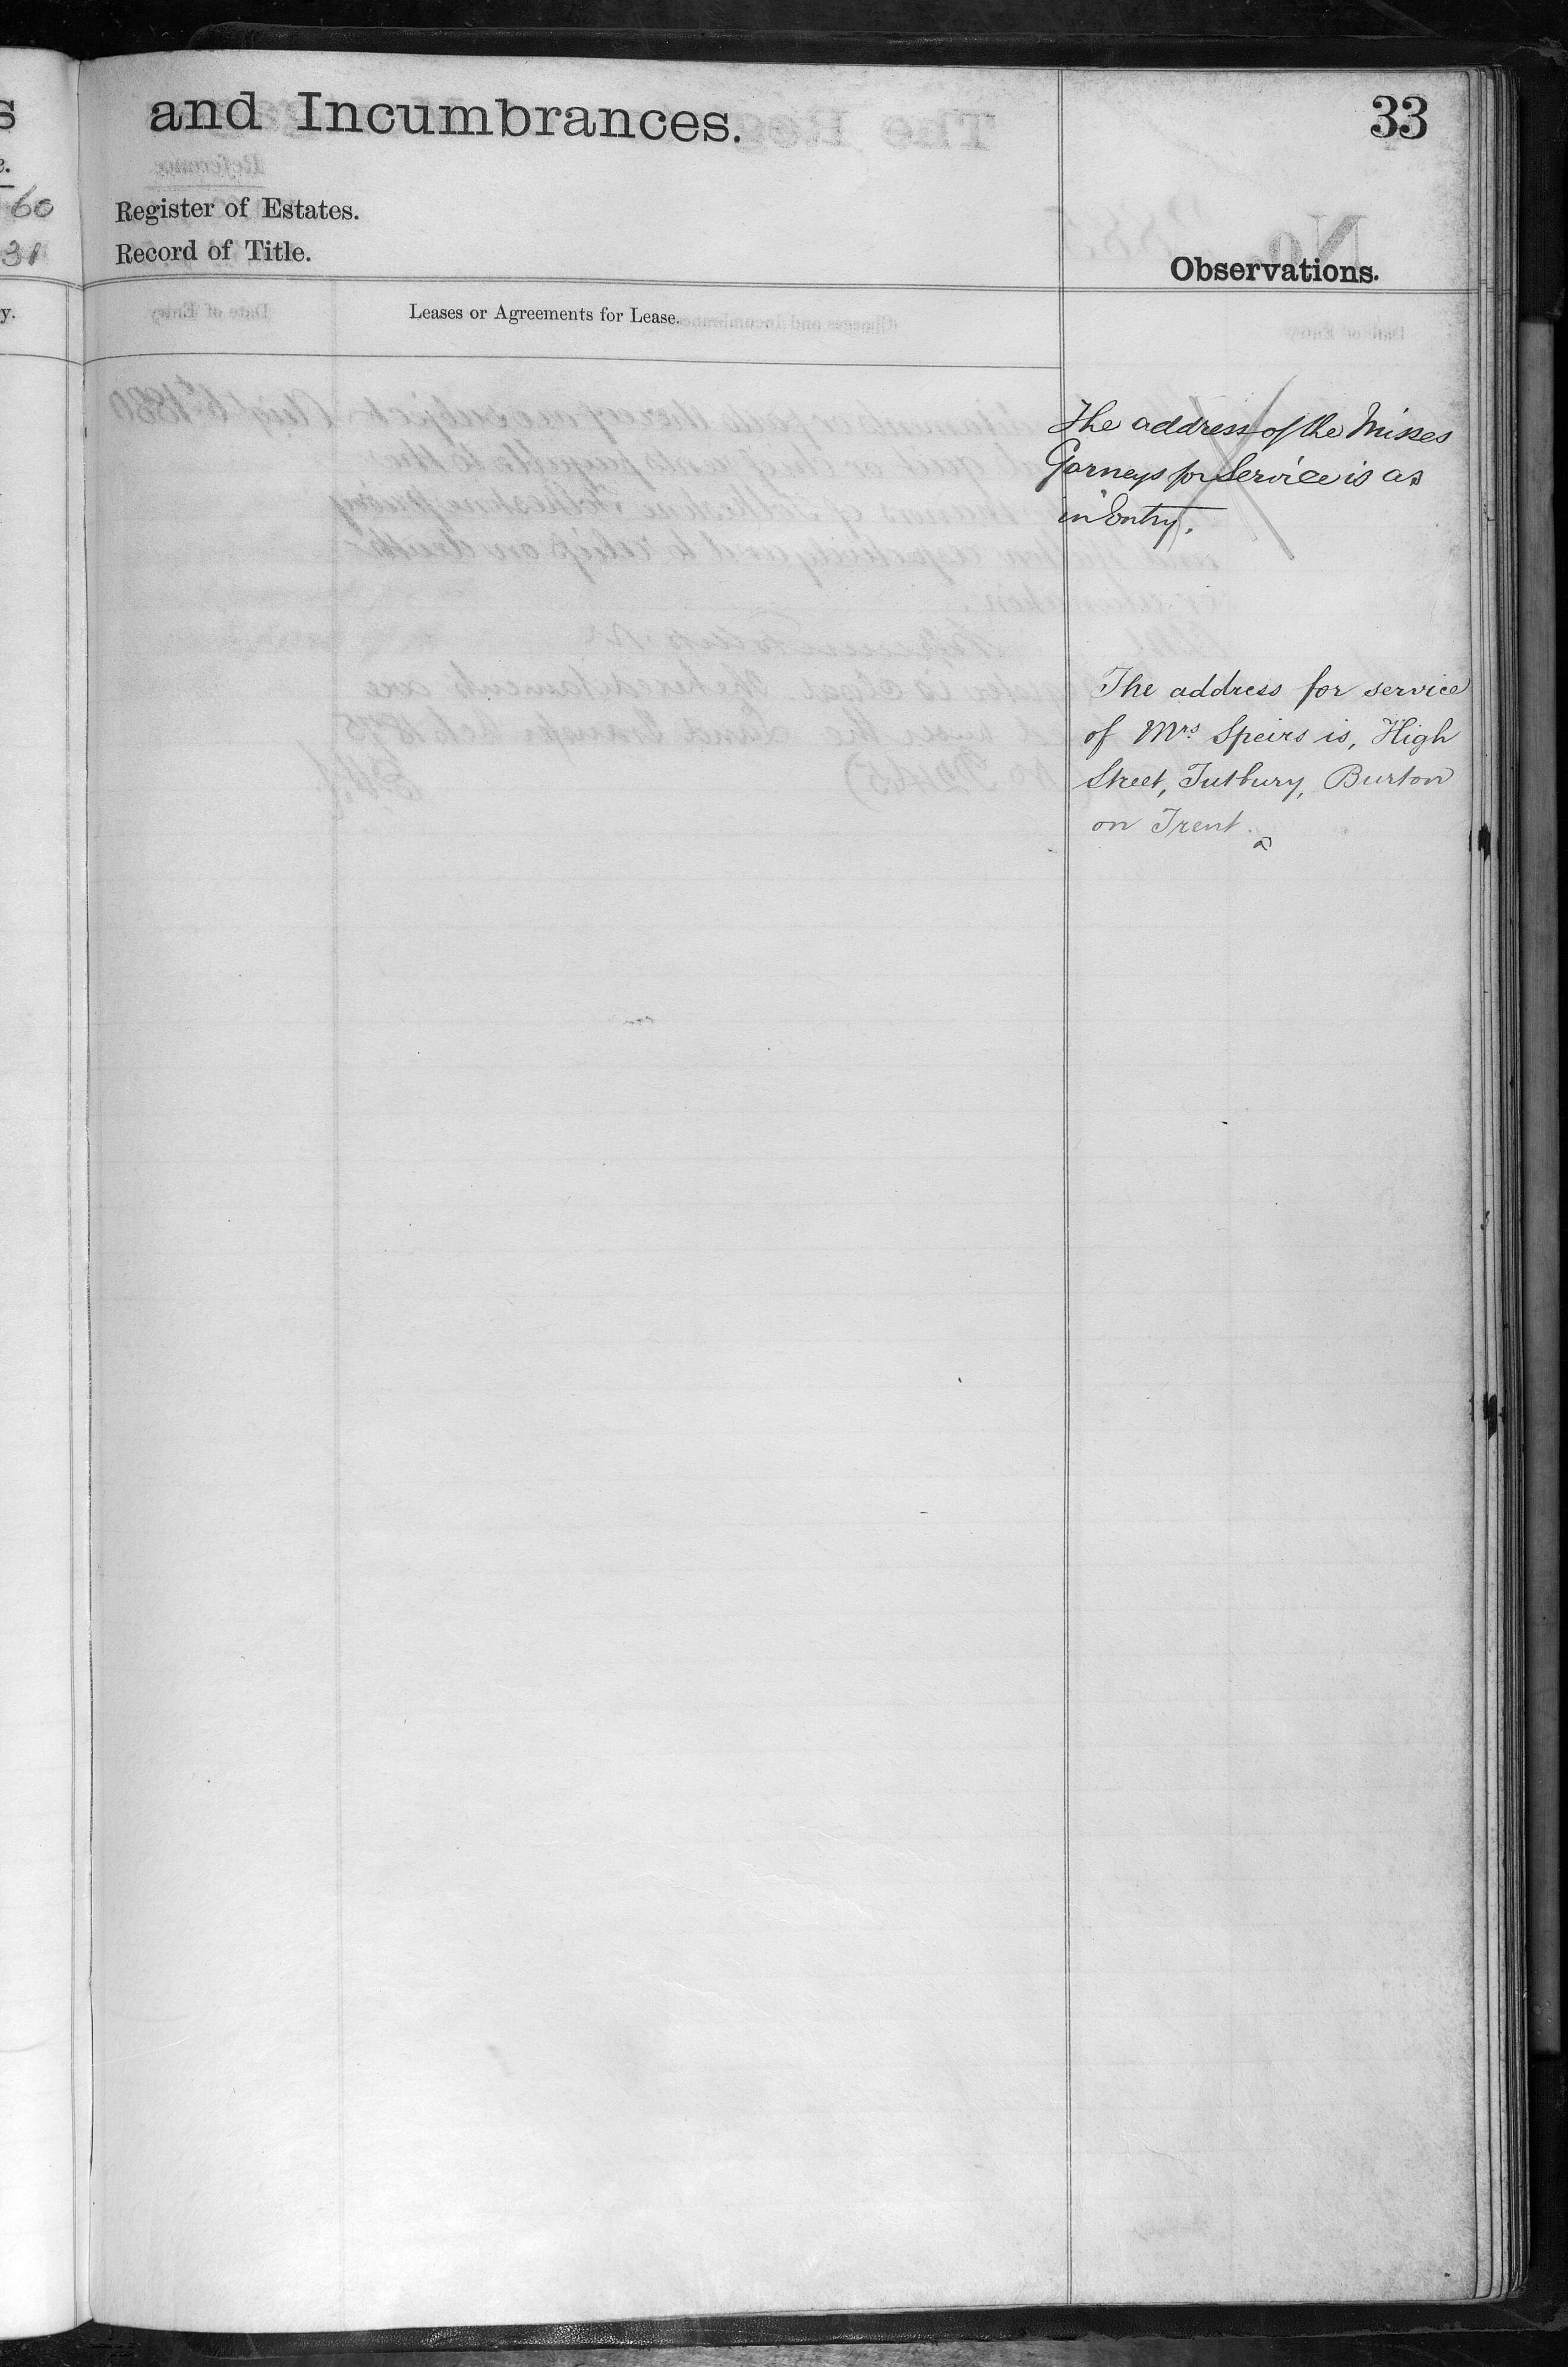 and Incumbrances.
33
60
31
Register of Estates.
Record of Title.
Observations.
y.
Leases or Agreements for Lease.
The address of the Misses
Gorneys for Service is as
in Entry.
The address for service
of Mrs Speirs is, High
Street, Tutbury, Burton
on Trent.